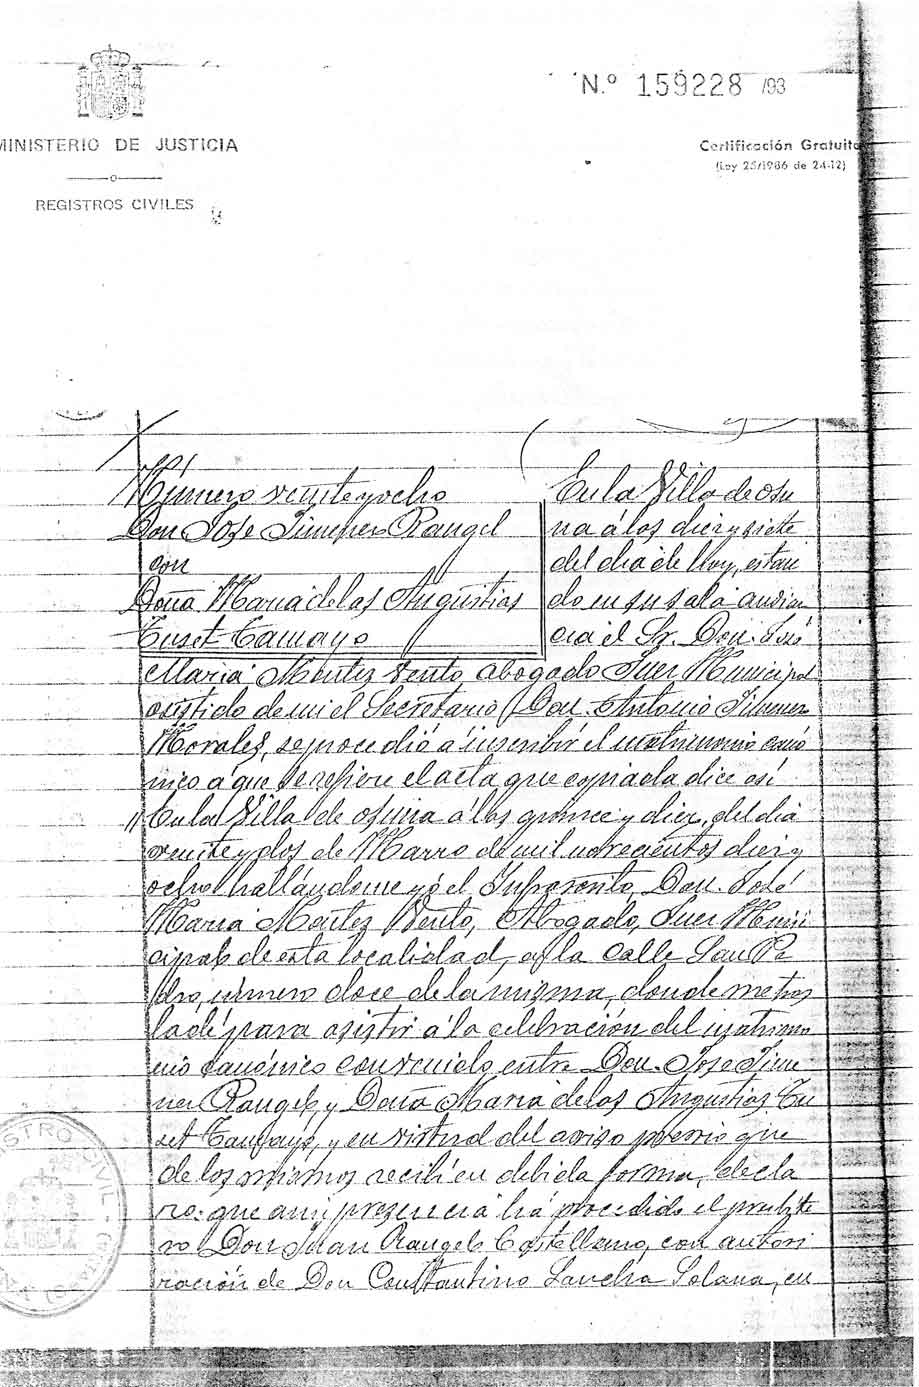 N.º 159228 /93
MINISTERIO DE JUSTICIA
REGISTROS CIVILES
Certificación Gratuita
(Ley 25/1986 de 24-12)
Número veinte y ocho
Don Jose Jimenez Rangel
con
Doña Maria de las Angustias
Tuset Tamayo
En la Villa de Osu
na á los diez y siete
del dia de hoy, estan
do en su sala audien
cia el Sr. Don José
Maria Montes Vento abogado Juez Municipal
asistido de mi el Secretario Don Antonio Jimenez
Morales, se procedió á inscribir el matrimonio canó
nico á que se refiere el acta que copiada dice así
"En la Villa de Osuna á las quince y diez, del dia
veinte y dos de Marzo de mil novecientos diez y
ocho hallándome yo el Infrascrito, Don José
Maria Montes Vento, Abogado, Juez Muni
cipal de esta localidad, en la Calle San Pe
dro, número doce de la misma, donde me tras
ladé para asistir á la celebración del matrimo
nio canónico convenido entre Don Jose Jime
nez Rangel y Doña Maria de las Angustias Tu
set Tamayo, y en virtud del aviso previo que
de los mismos recibí en debida forma, decla
ro: que a mi presencia há procedido el presbite
ro Don Juan Rangel Castellano, con autori
zación de Don Constantino Sancha Solana, en
REGISTRO CIVIL